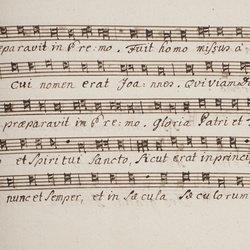 eparavit in Ere: mo. Fuit homo missus à
Cui nomen erat Joa: nnes. Qui viam
præparavit in Ere: mo. Gloria Patri et
et Spiritui Sancto, Sicut erat in princi
nunc et Semper, et in Sæ cula Sæ culorum